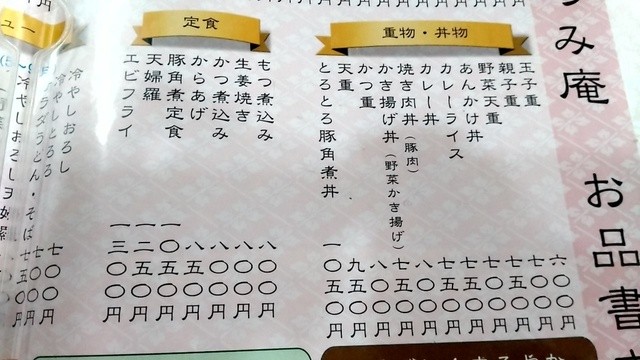 み庵
お品書
重物・丼物
玉子重 六五〇円
親子重 七〇〇円
野菜天重 七五〇円
あんかけ丼 七〇〇円
カレーライス 七五〇円
カレー丼 七五〇円
焼き肉丼（豚肉） 八〇〇円
かき揚げ丼（野菜かき揚げ） 七五〇円
かつ重 八〇〇円
天重 九五〇円
とろとろ豚角煮丼 一〇五〇円
定食
もつ煮込み 八〇〇円
生姜焼き 八〇〇円
かつ煮込み 八〇〇円
からあげ 八五〇円
豚角煮定食 一〇五〇円
天婦羅 一二五〇円
エビフライ 一三〇〇円
冷やしおろし
冷やしとろろ
うどん・そば